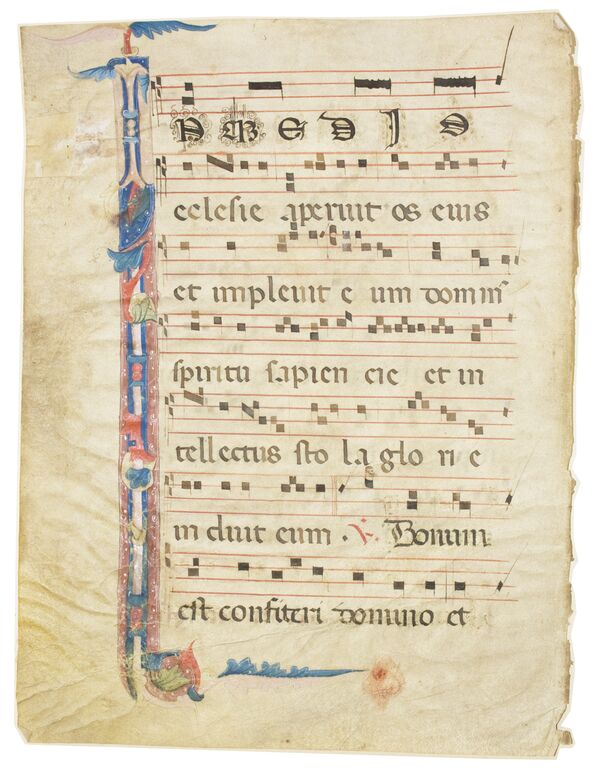 I N M E D I O
eclesie aperuit os eius
et impleuit e um domin᷒
spiritu sapien cie et in
tellectus sto la glo ri e
in duit eum . Bonum
est confiteri domino et